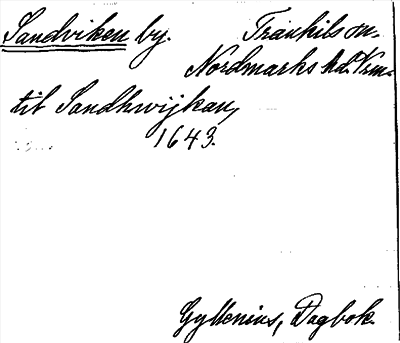 Sandviken by. Trankils sn.
Nordmarks hd. Vrm.
til Sandhwijkan,
1643.
Gyllenius, Dagbok.